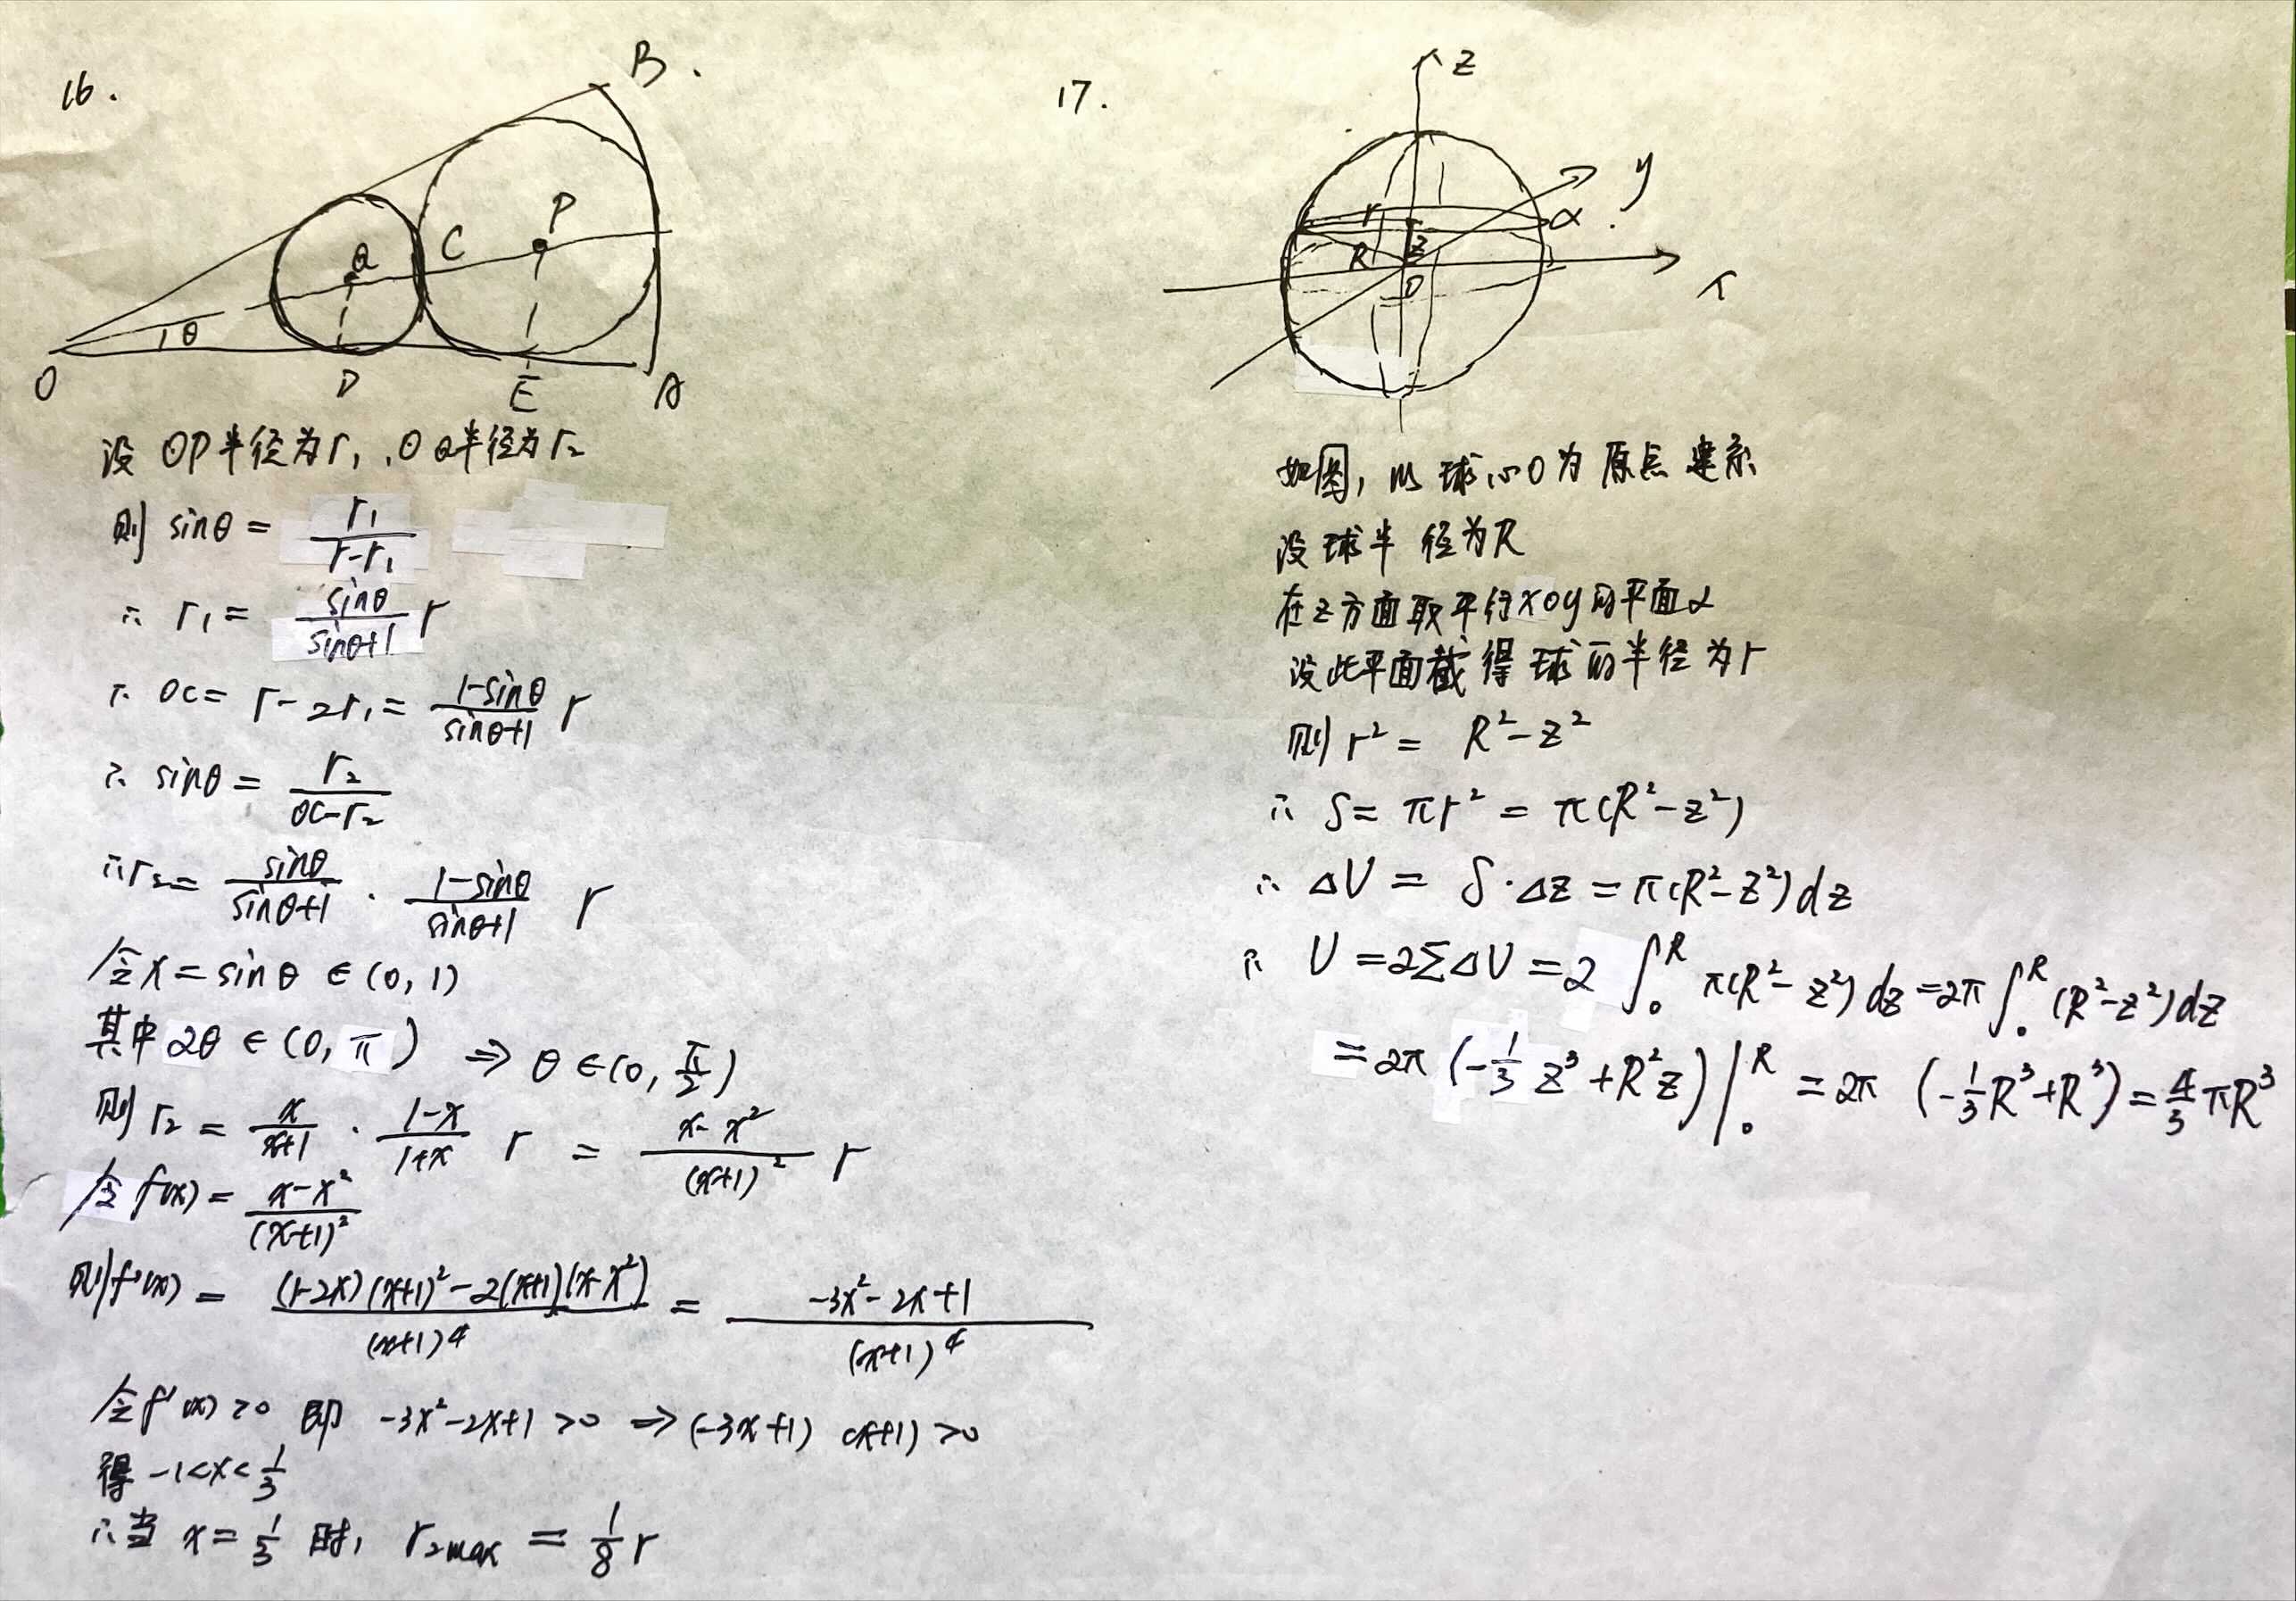 16.
B.
P
C
Q
θ
O
D
E
A
设 ⊙P半径为r₁, ⊙Q半径为r₂
则 sinθ = r₁/(r-r₁)
∴ r₁ = sinθ/(sinθ+1) r
∴ OC = r-2r₁ = (1-sinθ)/(sinθ+1) r
∴ sinθ = r₂/(OC-r₂)
∴ r₂ = sinθ/(sinθ+1) · (1-sinθ)/(sinθ+1) r
令x = sinθ ∈ (0, 1)
其中 2θ ∈ (0, π) ⇒ θ ∈ (0, π/2)
则 r₂ = x/(x+1) · (1-x)/(1+x) r = (x-x²)/(x+1)² r
令 f(x) = (x-x²)/(x+1)²
则f'(x) = ((1-2x)(x+1)²-2(x+1)(x-x²))/(x+1)⁴ = (-3x²-2x+1)/(x+1)⁴
令f'(x)>0 即 -3x²-2x+1 >0 ⇒ (-3x+1) (x+1) >0
得 -1<x<1/3
∴当 x = 1/3 时, r₂max = 1/8 r
17.
z
y
α
r
R
z
O
x
如图, 以球心O为原点建系
设球半径为R
在z方面取平行xoy的平面α
设此平面截得球的半径为r
则 r² = R²-z²
∴ S = πr² = π(R²-z²)
∴ ΔV = S·Δz = π(R²-z²)dz
∴ V = 2ΣΔV = 2∫₀ᴿ π(R²-z²)dz = 2π∫₀ᴿ (R²-z²)dz
= 2π (-1/3 z³+R²z)|₀ᴿ = 2π (-1/3 R³+R³) = 4/3 πR³